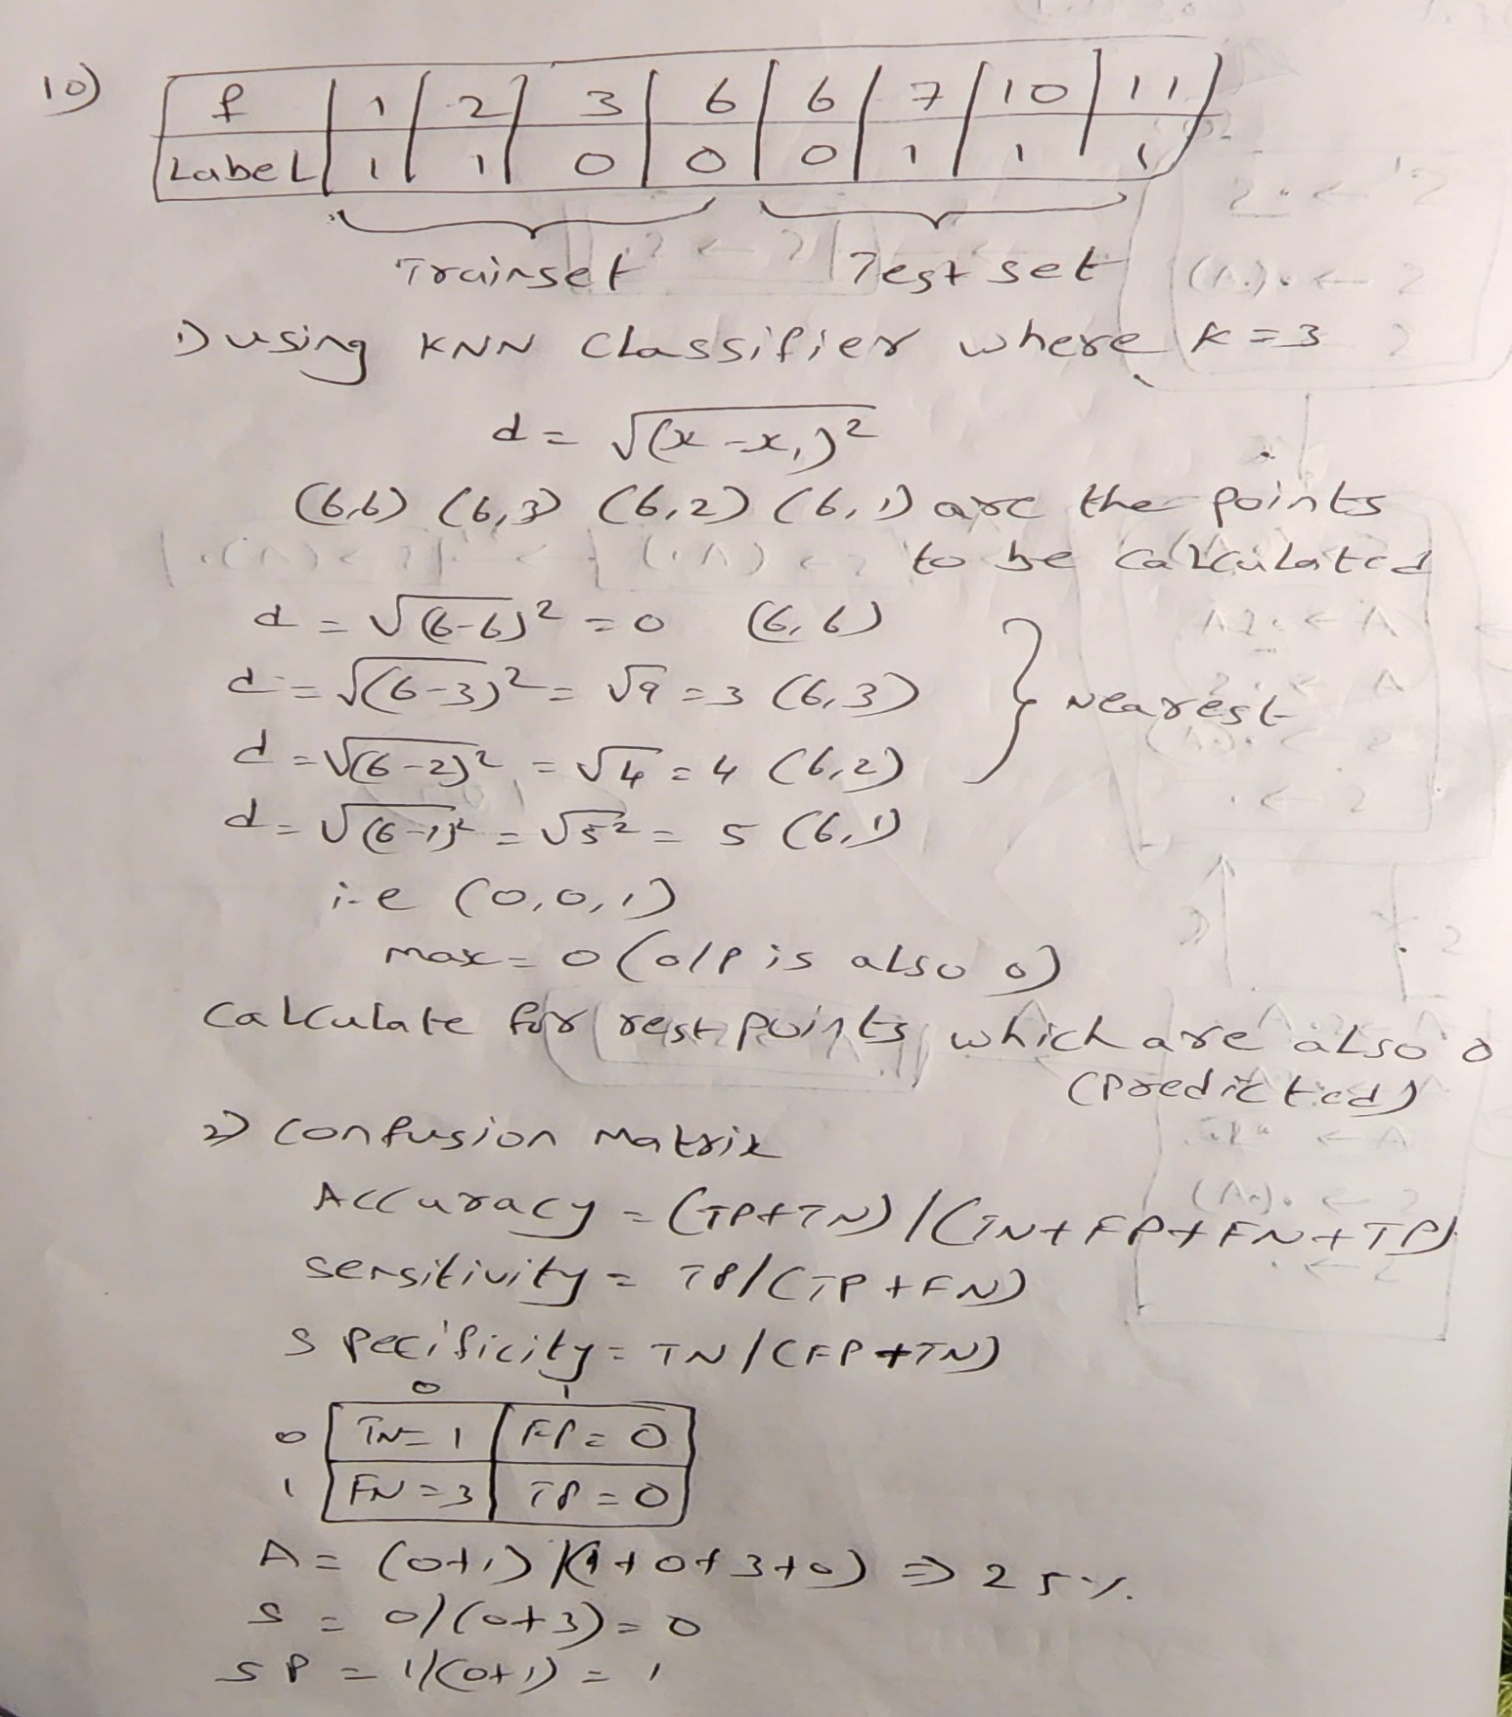 10)
f | 1 | 2 | 3 | 6 | 6 | 7 | 10 | 11
Label | 1 | 1 | 0 | 0 | 0 | 1 | 1 | 1
Trainset Test set
1) using KNN Classifier where k = 3
d = √(x - x₁)²
(6,6) (6,3) (6,2) (6,1) are the points
to be calculated
d = √(6-6)² = 0 (6,6)
d = √(6-3)² = √9 = 3 (6,3)
Nearest
d = √(6-2)² = √4 = 4 (6,2)
d = √(6-1)² = √5² = 5 (6,1)
i.e (0,0,1)
max = 0 (o/p is also 0)
Calculate for rest points which are also 0
(Predicted)
2) Confusion Matrix
Accuracy = (TP+TN) / (TN+FP+FN+TP)
Sensitivity = TP/(TP+FN)
Specificity = TN/(FP+TN)
0 1
0 | TN=1 | FP=0
1 | FN=3 | TP=0
A = (0+1)/(1+0+3+0) ⇒ 25%
S = 0/(0+3) = 0
SP = 1/(0+1) = 1